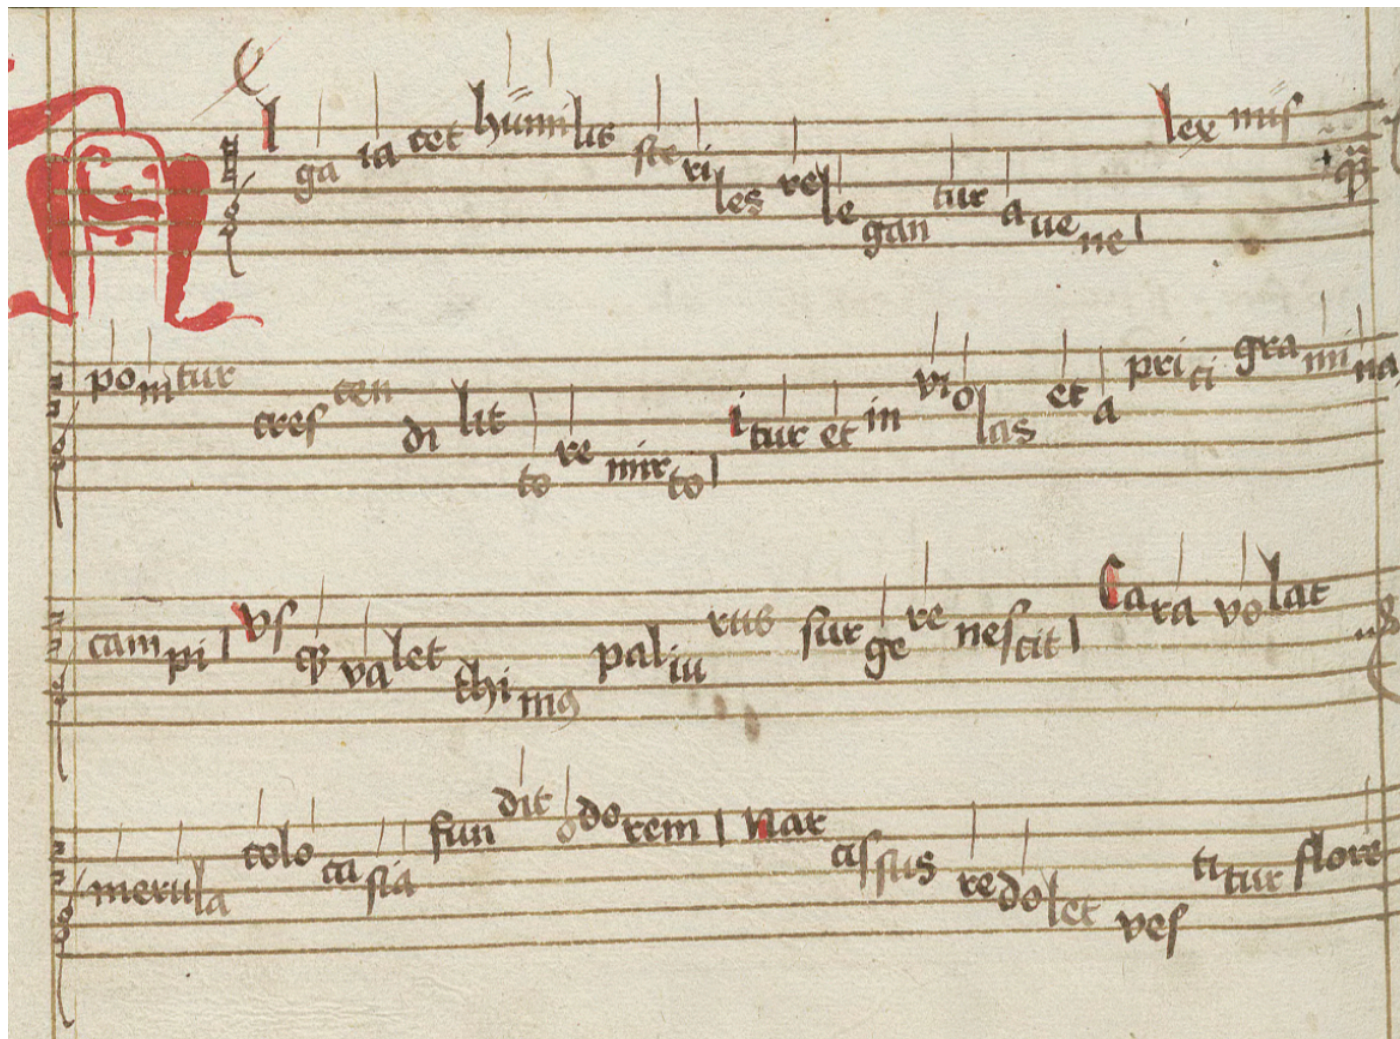 Alga iacet humilis steriles relegantur auene lex mis
ponitur crescendi lit tore mirto itur et in violas et aprici gramina
campi vsqꝫ valet thimꝰ paliurus surgere nescit Cara volat
merula colo casia fundit odorem Narcissus redolet vestitur flore